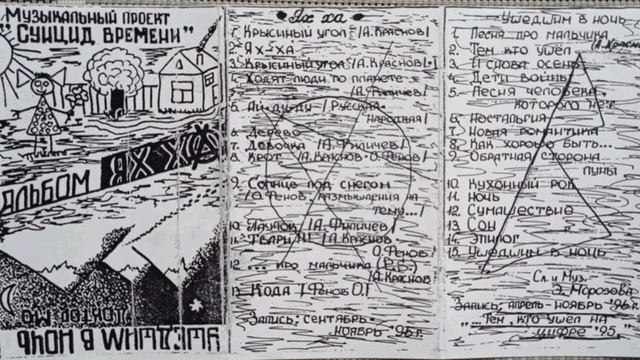 Музыкальный проект
"Суицид времени"
Альбом Ях ха
Ушедшим в ночь
Ях ха
1. Крысиный угол /А.Краснов/
2. Ях-ха
3. Крысиный угол /А.Краснов/
4. Ходят люди по планете
/А.Филичев/
5. Ай-ду-ду /Русская
народная/
6. Дерево
7. Девочка /А.Филичев/
8. Керт /А.Краснов-О.Фенов/
9. Солнце под снегом
/О.Фенов. Размышления на
тему.../
10. Паучок /А.Филичев/
11. Твари /А.Краснов
О.Фенов/
12. ... про мальчика
А.Краснов
13. Кода /Фенов О./
Запись: сентябрь-
ноябрь '96 г.
Ушедшим в ночь
1. Песня про мальчика
2. Тем кто ушёл
3. И снова осень
4. Дети войны
5. Песня человека,
которого нет
6. Ностальгия
7. Новая романтика
8. Как хорошо быть...
9. Обратная сторона
луны
10. Кухонный рок
11. Ночь
12. Сумашествие
13. Сон
14. Эпилог
15. Ушедшим в ночь
Сл. и Муз.
Э. Морозова
Запись: апрель-ноябрь '96 г.
"Тем, кто ушел на
цифре '95"